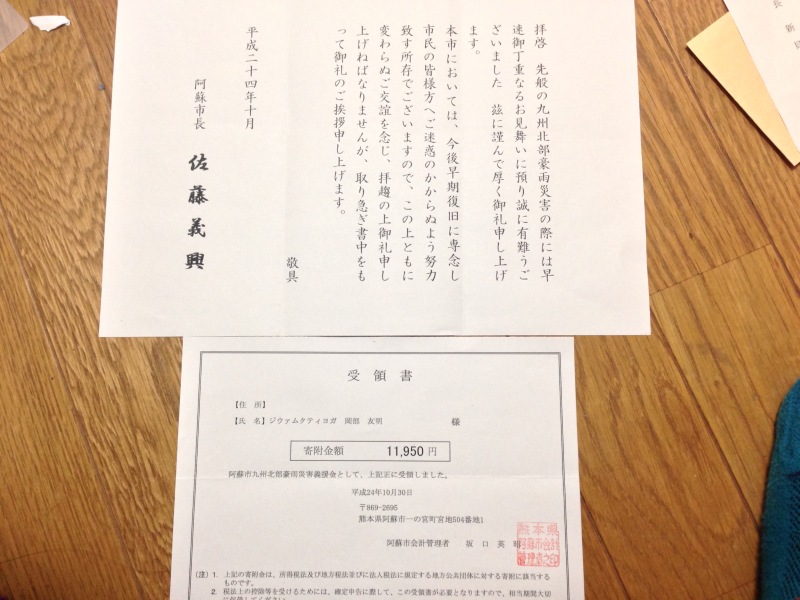 拝啓　先般の九州北部豪雨災害の際には早
速御丁重なるお見舞いに預り誠に有難うご
ざいました　茲に謹んで厚く御礼申し上げ
ます。
本市においては、今後早期復旧に専念し
市民の皆様方へご迷惑のかからぬよう努力
致す所存でございますので、この上ともに
変わらぬご交誼を念じ、拝趨の上御礼申し
上げねばなりませんが、取り急ぎ書中をも
って御礼のご挨拶申し上げます。
敬具
平成二十四年十月
阿蘇市長　佐藤義興
長
新
受領書
【住　所】
【氏　名】ジヴァムクティヨガ　岡部　友明　様
寄附金額　11,950 円
阿蘇市九州北部豪雨災害義援金として、上記正に受領しました。
平成24年10月30日
〒869-2695
熊本県阿蘇市一の宮町宮地504番地1
阿蘇市会計管理者　坂口英
熊本県
阿蘇市会計
管理者之印
（注）1. 上記の寄附金は、所得税法及び地方税法並びに法人税法に規定する地方公共団体に対する寄附に該当する
ものです。
2. 税法上の控除等を受けるためには、確定申告に際して、この受領書が必要となりますので、相当期間大切